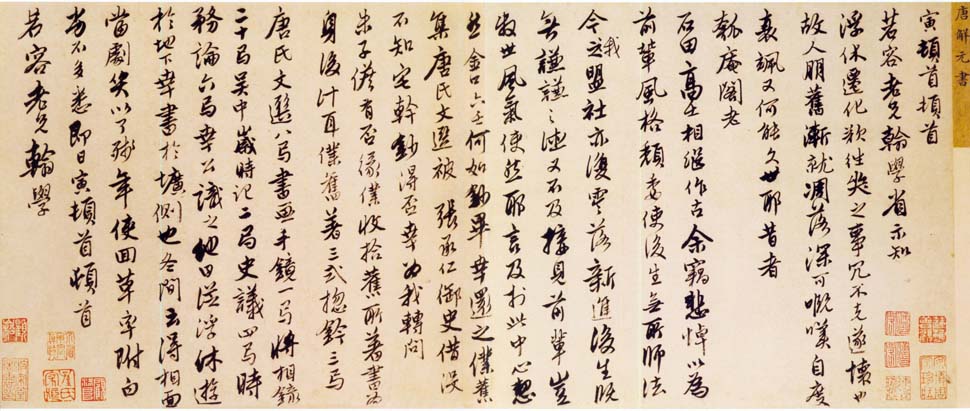 唐解元書
寅頓首頓首
若容老兄翰學省示知
浮休遷化歎徃奖之事冗不克遂懷也
故人朋舊漸就凋落深可嘅嘆自度
衰颯又何能久世耶昔者
瓠庵閣老
石田高士相继作古余竊悲悼以為
前輩風格頹委使後生無所師法
今之我盟社亦復零落新進後生既
無謙謙之德又不及接見前輩豈
衰世風氣使然耶言及於此中心
然金口六壬何如鈔畢幸還之僕舊
集唐氏文選被張承仁御史借沒
不知宅幹鈔得否幸为我轉问
朱子儋有否後僕收拾舊所著書为
身後計耳僕舊著三式揔鈐三局
唐氏文選八局書畫手鏡一局將相錄
二十局吳中歲時记二局史議四局時
務論六局幸公識之他日從浮休遊
於地下幸書於壙側也冬間去得相面
當劇矣以了残年使回草字附白
尚不多悉即日寅頓首頓首
若容老兄翰學